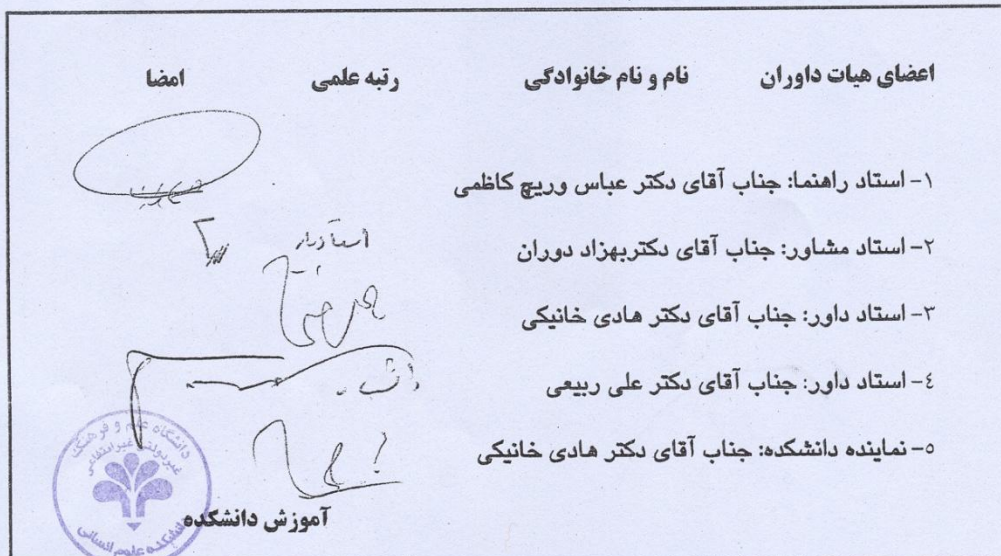 اعضای هیات داوران نام و نام خانوادگی رتبه علمی امضا
۱- استاد راهنما: جناب آقای دکتر عباس وریج کاظمی
۲- استاد مشاور: جناب آقای دکتربهزاد دوران استادیار
۳- استاد داور: جناب آقای دکتر هادی خانیکی
۴- استاد داور: جناب آقای دکتر علی ربیعی
۵- نماینده دانشکده: جناب آقای دکتر هادی خانیکی
آموزش دانشکده
دانشگاه علم و فرهنگ
غیردولتی غیرانتفاعی
دانشکده علوم انسانی